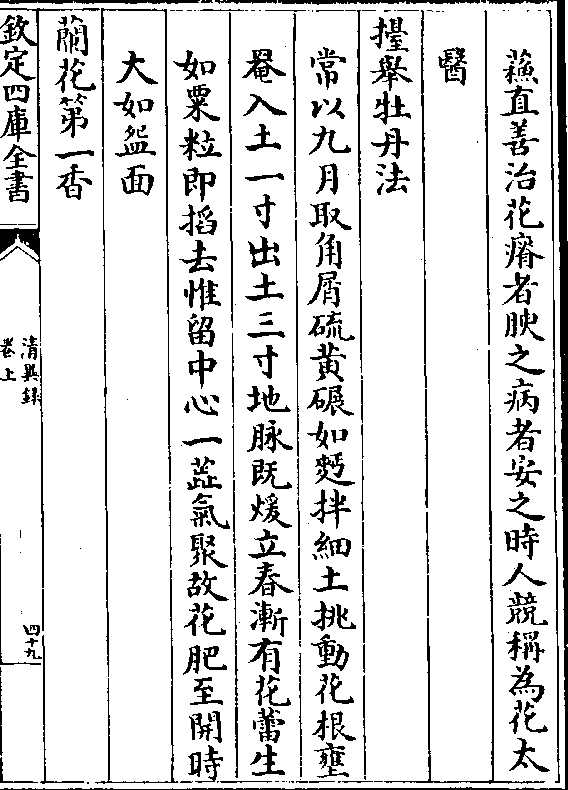 蘓直善治花瘠者腴之病者安之時人競稱為花太
醫
擡舉牡丹法
常以九月取角屑硫黄碾如麪拌細土挑動花根壅
罨入土一寸出土三寸地脉既煖立春漸有花蕾生
如粟粒即掐去惟留中心一蕋氣聚故花肥至開時
大如盌面
蘭花第一香
欽定四庫全書
清異録
卷上
四十九